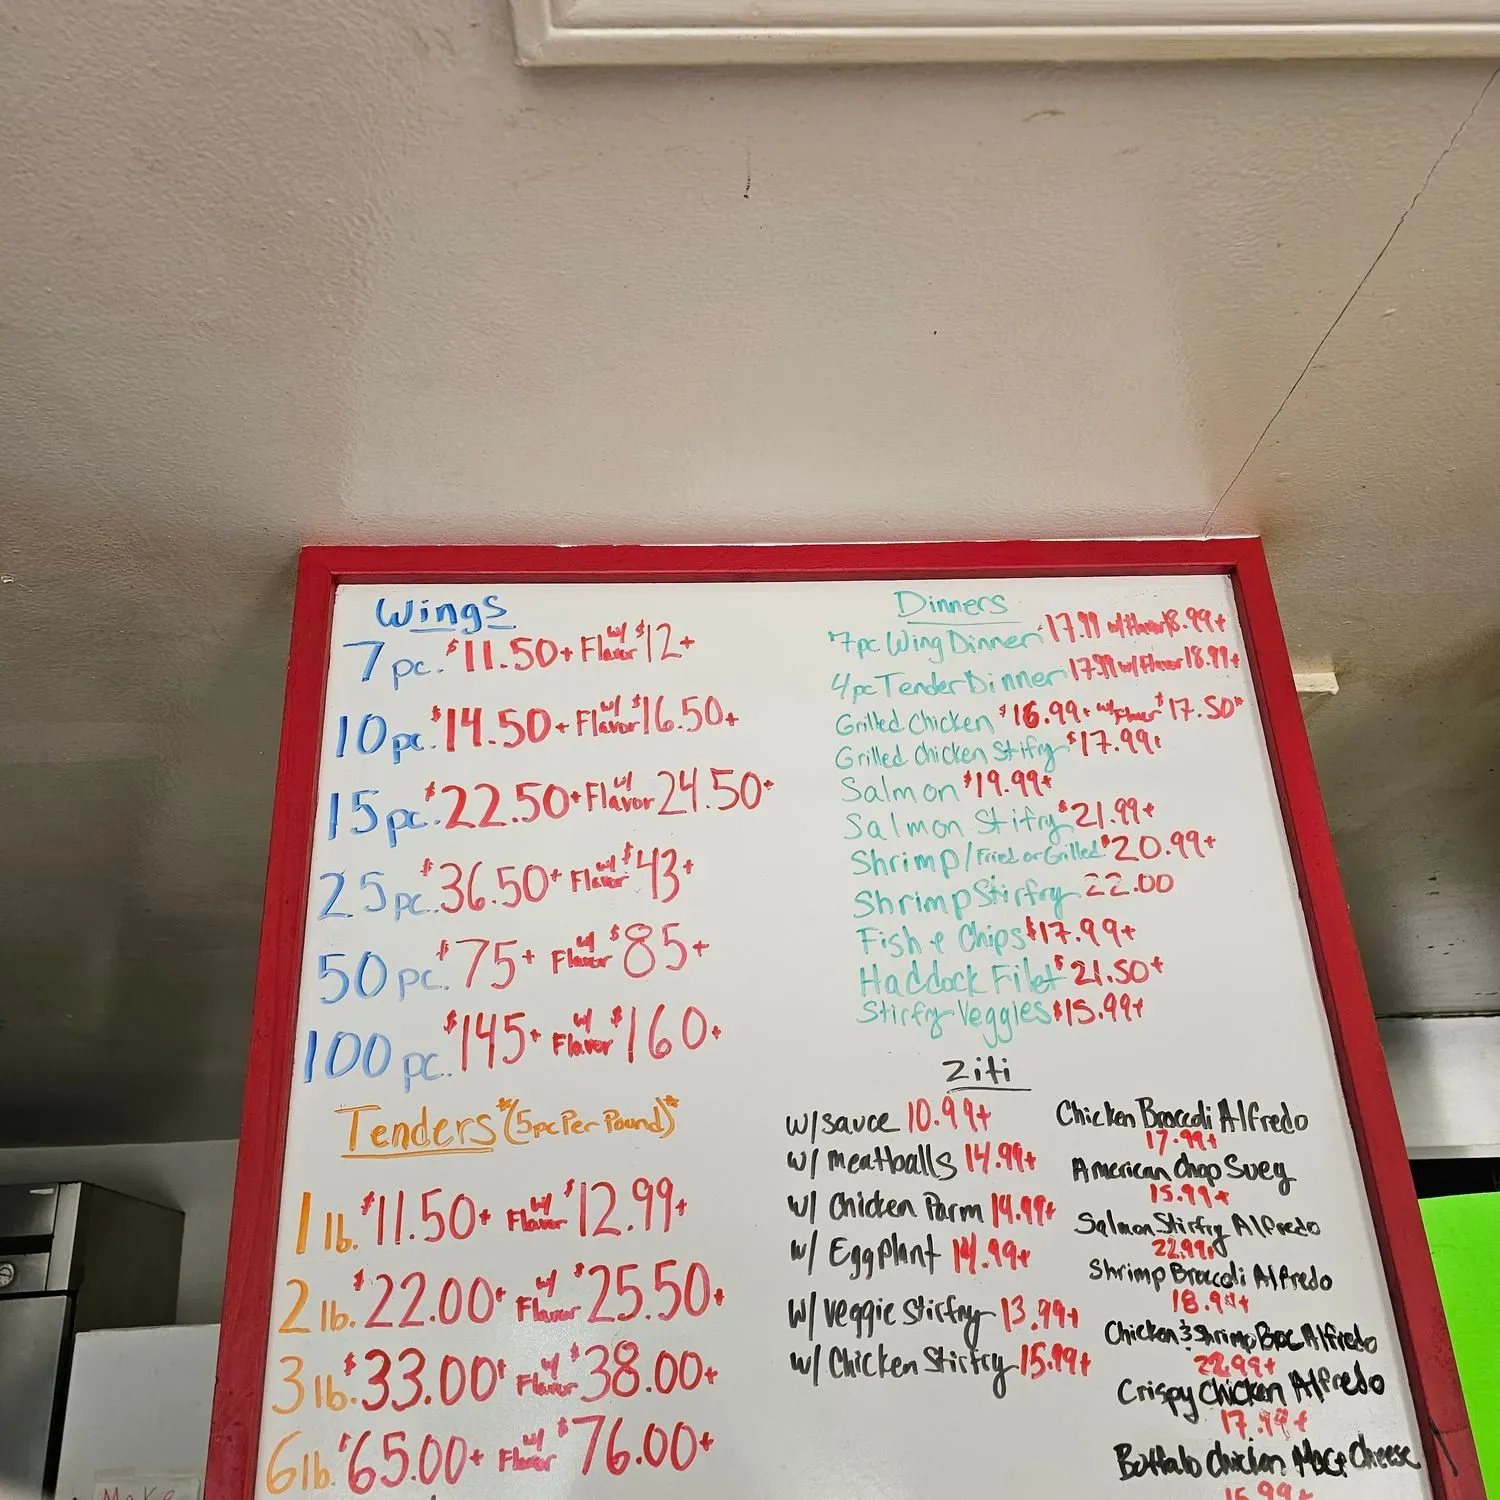 Wings
7 pc. $11.50+ w/ Flavor $12+
10 pc. $14.50+ w/ Flavor $16.50+
15 pc. $22.50+ w/ Flavor 24.50+
25 pc. $36.50+ w/ Flavor $43+
50 pc. $75+ w/ Flavor $85+
100 pc. $145+ w/ Flavor $160+
Tenders *(5pc Per Pound)*
1 lb. $11.50+ w/ Flavor $12.99+
2 lb. $22.00+ w/ Flavor $25.50+
3 lb. $33.00+ w/ Flavor $38.00+
6 lb. $65.00+ w/ Flavor $76.00+
Dinners
7pc Wing Dinner 17.99 w/ Flavor 18.99+
4pc Tender Dinner 17.99 w/ Flavor 18.99+
Grilled Chicken $16.99+ w/ Flavor $17.50+
Grilled Chicken Stifry $17.99+
Salmon $19.99+
Salmon Stifry $21.99+
Shrimp/Fried or Grilled $20.99+
Shrimp Stirfry 22.00
Fish & Chips $17.99+
Haddock Filet $21.50+
Stirfry Veggies $15.99+
Ziti
w/ sauce 10.99+
w/ meatballs 14.99+
w/ Chicken Parm 14.99+
w/ Eggplant 14.99+
w/ Veggie Stirfry 13.99+
w/ Chicken Stirfry 15.99+
Chicken Broccoli Alfredo
17.99+
American Chop Suey
15.99+
Salmon Stirfry Alfredo
22.99+
Shrimp Broccoli Alfredo
18.99+
Chicken & Shrimp Broc Alfredo
22.99+
Crispy Chicken Alfredo
17.99+
Buffalo Chicken Mac & Cheese
15.99+
Make